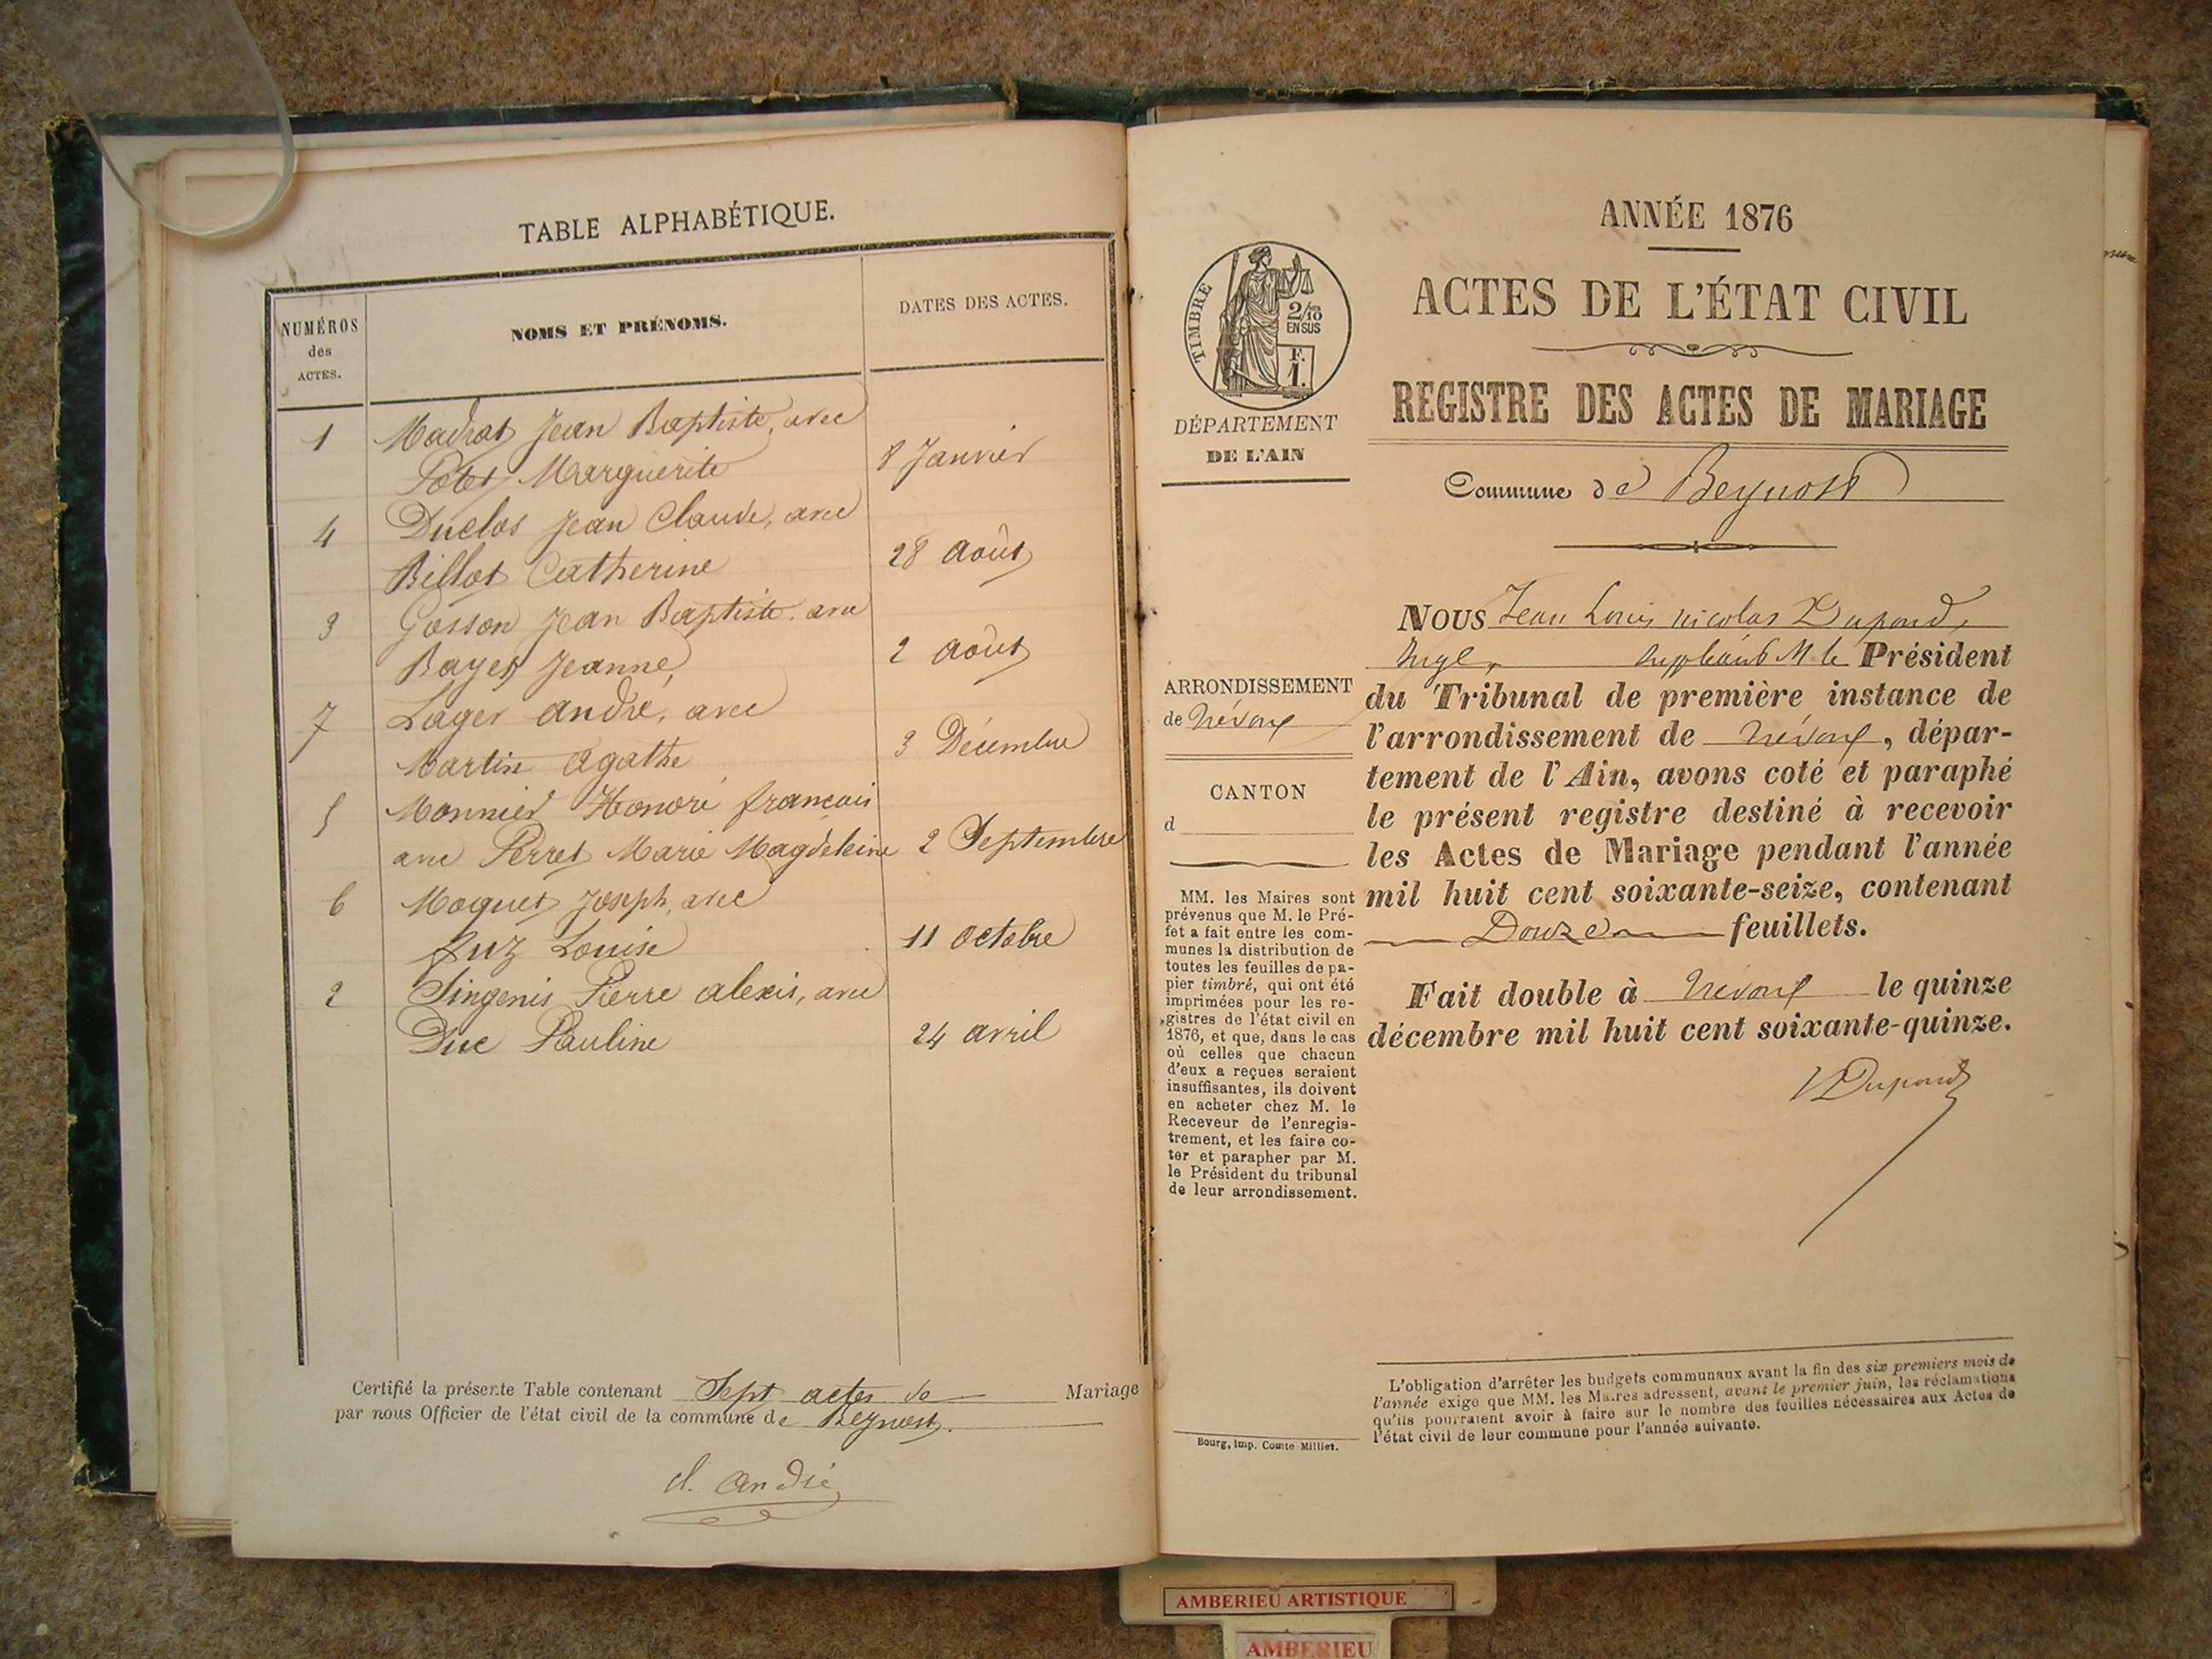 TABLE ALPHABÉTIQUE.
NUMÉROS
des
ACTES.
NOMS ET PRÉNOMS.
DATES DES ACTES.
1 Madrat Jean Baptiste, avec
Potet Marguerite 8 Janvier
4 Duclos Jean Claude, avec
Billot Catherine 28 août
3 Gosson Jean Baptiste. avec
Bayet Jeanne, 2 août
7 Lager andré, avec
Martin agathe 3 Décembre
5 Monnier Honoré françois
avec Perret Marie Magdeleine 2 Septembre
6 Moquet Joseph, avec
Luz Louise 11 octobre
2 Singenis Pierre alexis, avec
Duc Pauline 24 avril
Certifié la présente Table contenant Sept actes de Mariage
par nous Officier de l'état civil de la commune de Beynost.
cl. andré
TIMBRE
2/10
EN SUS
F.
1.
DÉPARTEMENT
DE L'AIN
ARRONDISSEMENT
de Trévoux
CANTON
d
MM. les Maires sont
prévenus que M. le Pré-
fet a fait entre les com-
munes la distribution de
toutes les feuilles de pa-
pier timbré, qui ont été
imprimées pour les re-
gistres de l'état civil en
1876, et que, dans le cas
où celles que chacun
d'eux a reçues seraient
insuffisantes, ils doivent
en acheter chez M. le
Receveur de l'enregis-
trement, et les faire co-
ter et parapher par M.
le Président du tribunal
de leur arrondissement.
Bourg, imp. Comte-Milliet.
ANNÉE 1876
ACTES DE L'ÉTAT CIVIL
REGISTRE DES ACTES DE MARIAGE
Commune de Beynost
NOUS Jean Louis nicolas Dupond,
Juge, suppléant M. le Président
du Tribunal de première instance de
l'arrondissement de Trévoux, dépar-
tement de l'Ain, avons coté et paraphé
le présent registre destiné à recevoir
les Actes de Mariage pendant l'année
mil huit cent soixante-seize, contenant
Douze feuillets.
Fait double à Trévoux le quinze
décembre mil huit cent soixante-quinze.
Dupond
L'obligation d'arrêter les budgets communaux avant la fin des six premiers mois de
l'année exige que MM. les Maires adressent, avant le premier juin, les réclamations
qu'ils pourraient avoir à faire sur le nombre des feuilles nécessaires aux Actes de
l'état civil de leur commune pour l'année suivante.
AMBERIEU ARTISTIQUE
AMBERIEU